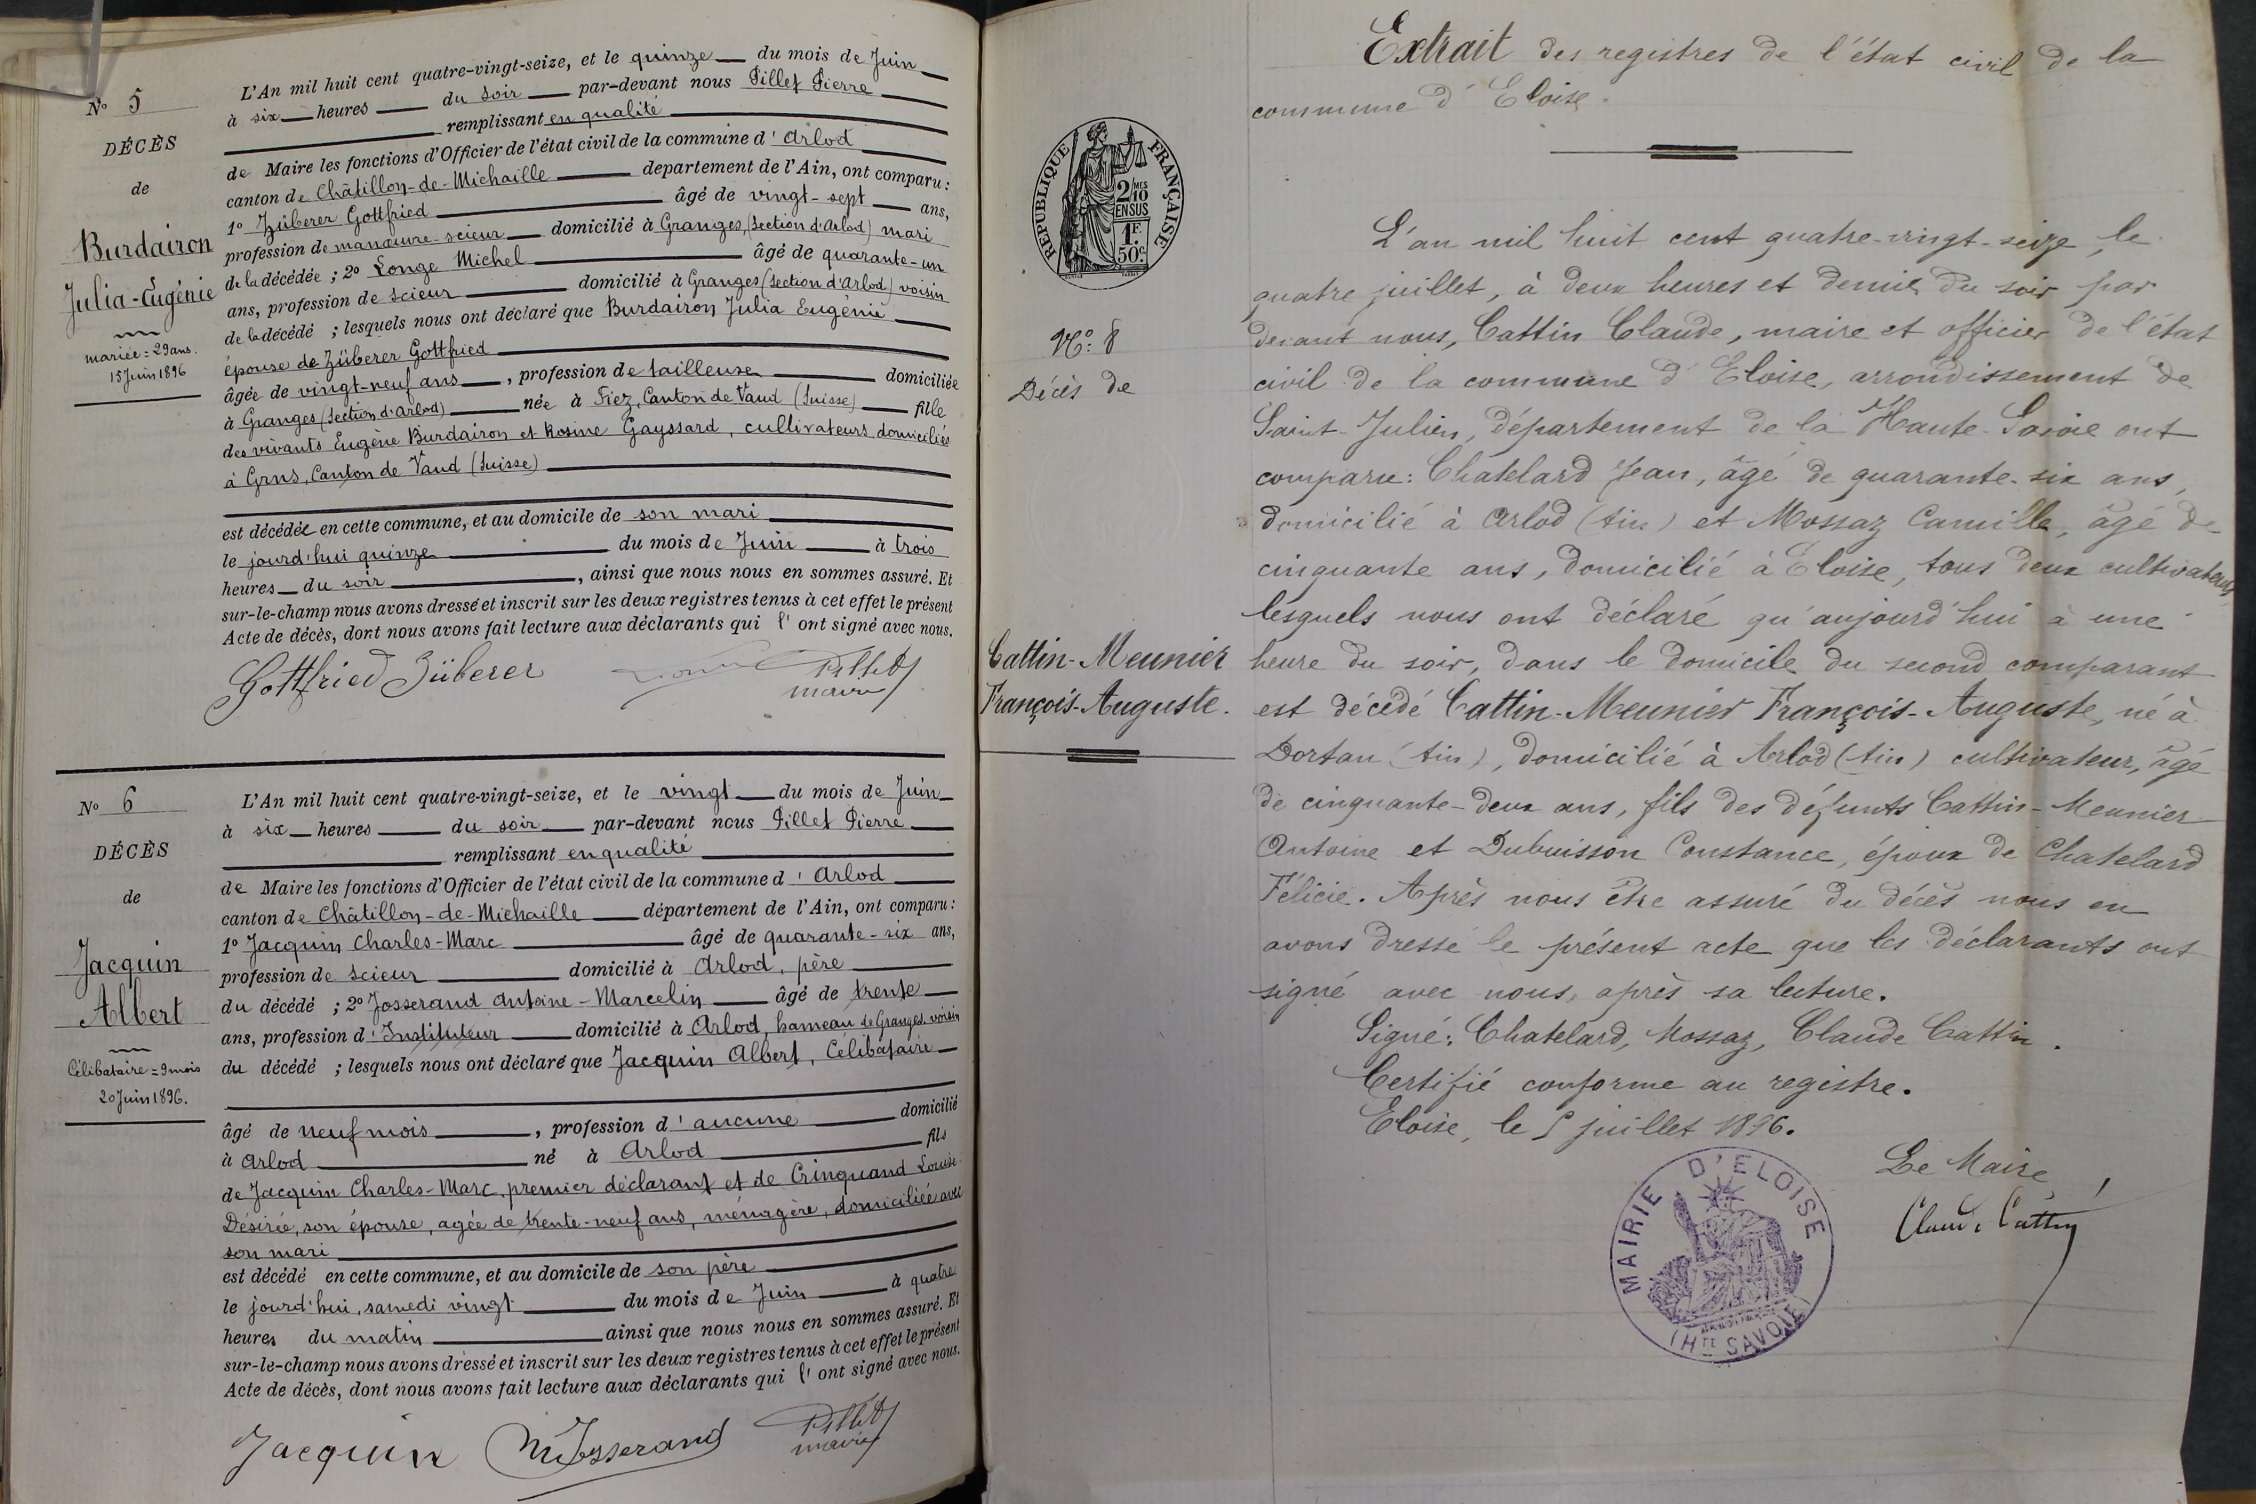 N° 5
DÉCÈS
de
Burdairon
Julia-Eugénie
mariée = 29 ans.
15 Juin 1896
L'An mil huit cent quatre-vingt-seize, et le quinze du mois de Juin
à six heures du soir par-devant nous Pillet Pierre
remplissant en qualité
de Maire les fonctions d'Officier de l'état civil de la commune d'Arlod
canton de Châtillon-de-Michaille departement de l'Ain, ont comparu :
1° Züberer Gottfried âgé de vingt-sept ans,
profession de manœuvre-scieur domicilié à Granges, (section d'Arlod) mari
de la décédée ; 2° Longe Michel âgé de quarante-un
ans, profession de scieur domicilié à Granges (section d'Arlod) voisin
de la décédé ; lesquels nous ont déclaré que Burdairon Julia Eugénie
épouse de Züberer Gottfried
âgée de vingt-neuf ans, profession de tailleuse domiciliée
à Granges (section d'Arlod) née à Fiez, Canton de Vaud (Suisse) fille
des vivants Eugène Burdairon et Rosine Gayssard, cultivateurs domiciliés
à Canton de Vaud (Suisse)
est décédée en cette commune, et au domicile de son mari
le jourd'hui quinze du mois de Juin à trois
heures du soir, ainsi que nous nous en sommes assuré. Et
sur-le-champ nous avons dressé et inscrit sur les deux registres tenus à cet effet le présent
Acte de décès, dont nous avons fait lecture aux déclarants qui l'ont signé avec nous.
Gottfried Züberer Pillet
maire
N° 6
DÉCÈS
de
Jacquin
Albert
Célibataire = 9 mois
20 Juin 1896.
L'An mil huit cent quatre-vingt-seize, et le vingt du mois de Juin
à six heures du soir par-devant nous Pillet Pierre
remplissant en qualité
de Maire les fonctions d'Officier de l'état civil de la commune d'Arlod
canton de Châtillon-de-Michaille département de l'Ain, ont comparu :
1° Jacquin Charles-Marc âgé de quarante-six ans,
profession de scieur domicilié à Arlod, père
du décédé ; 2° Josserand Antoine-Marcelin âgé de trente
ans, profession d'Instituteur domicilié à Arlod, hameau de Granges, voisin
du décédé ; lesquels nous ont déclaré que Jacquin Albert, Célibataire
âgé de neuf mois, profession d'aucune domicilié
à Arlod né à Arlod fils
de Jacquin Charles-Marc, premier déclarant et de Cringuand Louise
Désirée, son épouse, agée de trente-neuf ans, ménagère, domiciliée avec
son mari
est décédé en cette commune, et au domicile de son père
le jourd'hui, samedi vingt du mois de Juin à quatre
heures du matin ainsi que nous nous en sommes assuré. Et
sur-le-champ nous avons dressé et inscrit sur les deux registres tenus à cet effet le présent
Acte de décès, dont nous avons fait lecture aux déclarants qui l'ont signé avec nous.
Jacquin M Josserand Pillet
maire
RÉPUBLIQUE FRANÇAISE
2/10 MES
EN SUS
1F.
50c
N°: 8
Décès de
Cattin-Meunier
François-Auguste.
Extrait des registres de l'état civil de la
commune d'Eloise.
L'an mil huit cent quatre-vingt-seize, le
quatre juillet, à deux heures et demie du soir par
devant nous, Cattin Claude, maire et officier de l'état
civil de la commune d'Eloise, arrondissement de
Saint-Julien, département de la Haute-Savoie ont
comparu : Chatelard Jean, âgé de quarante-six ans,
domicilié à Arlod (Ain) et Mossaz Camille, âgé de
cinquante ans, domicilié à Eloise, tous deux cultivateurs,
lesquels nous ont déclaré qu'aujourd'hui à une
heure du soir, dans le domicile du second comparant
est décédé Cattin-Meunier François-Auguste, né à
Dortan (Ain), domicilié à Arlod (Ain) cultivateur, âgé
de cinquante-deux ans, fils des défunts Cattin-Meunier
Antoine et Dubuisson Constance, époux de Chatelard
Félicie. Après nous être assuré du décès nous en
avons dressé le présent acte que les déclarants ont
signé avec nous, après sa lecture.
Signé : Chatelard, Mossaz, Claude Cattin.
Certifié conforme au registre.
Eloise, le 5 juillet 1896.
Le Maire,
Claude Cattin
MAIRIE D'ELOISE
(HTE SAVOIE)